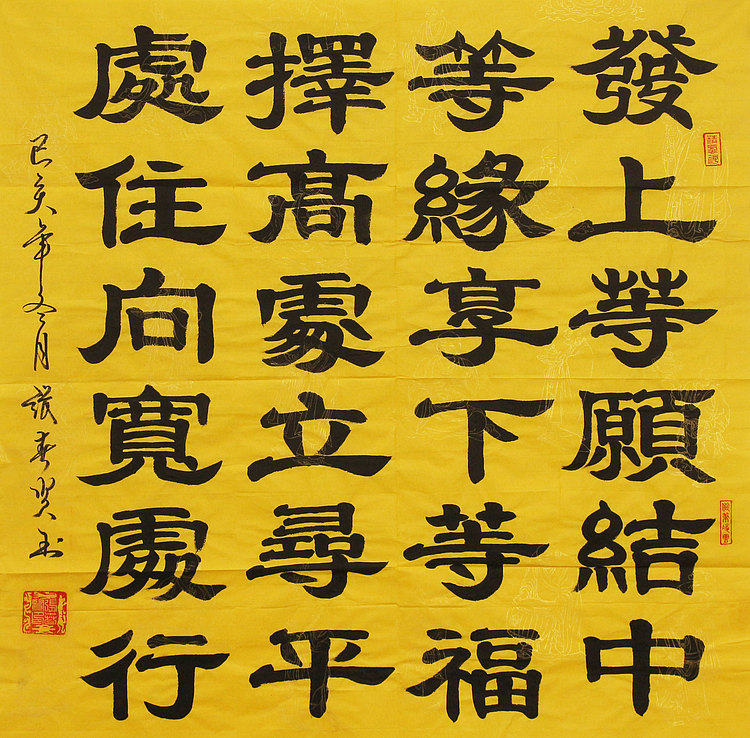 發上等願結中
等緣享下等福
擇髙處立尋平
處住向寬處行
己亥年冬月